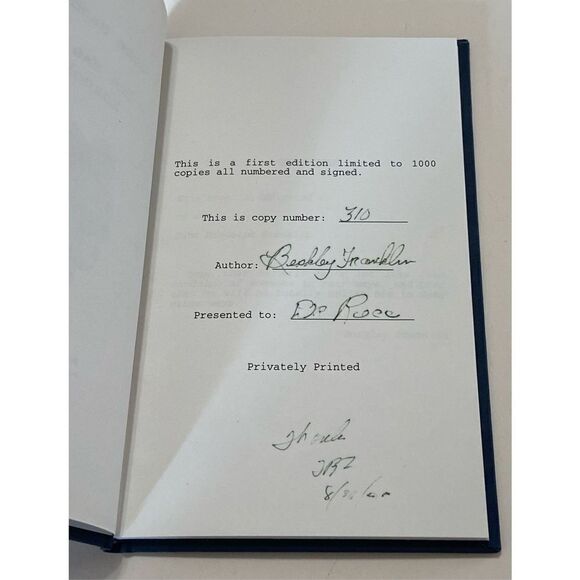 This is a first edition limited to 1000
copies all numbered and signed.
This is copy number: 310
Author: Beshley Franklin
Presented to:
Privately Printed
Thanks